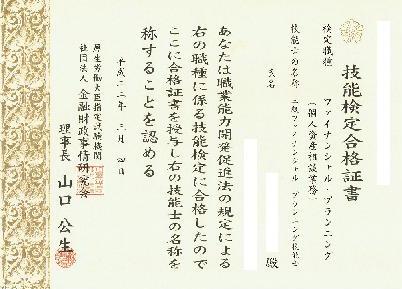 技能検定合格証書
検定職種
ファイナンシャル・プランニング
(個人資産相談業務)
技能士の名称
二級ファイナンシャル・プランニング技能士
氏名
殿
あなたは職業能力開発促進法の規定による
右の職種に係る技能検定に合格したので
ここに合格証書を授与し右の技能士の名称を
称することを認める
平成二二年三月四日
厚生労働大臣指定試験機関
社団法人 金融財政事情研究会
理事長 山口公生